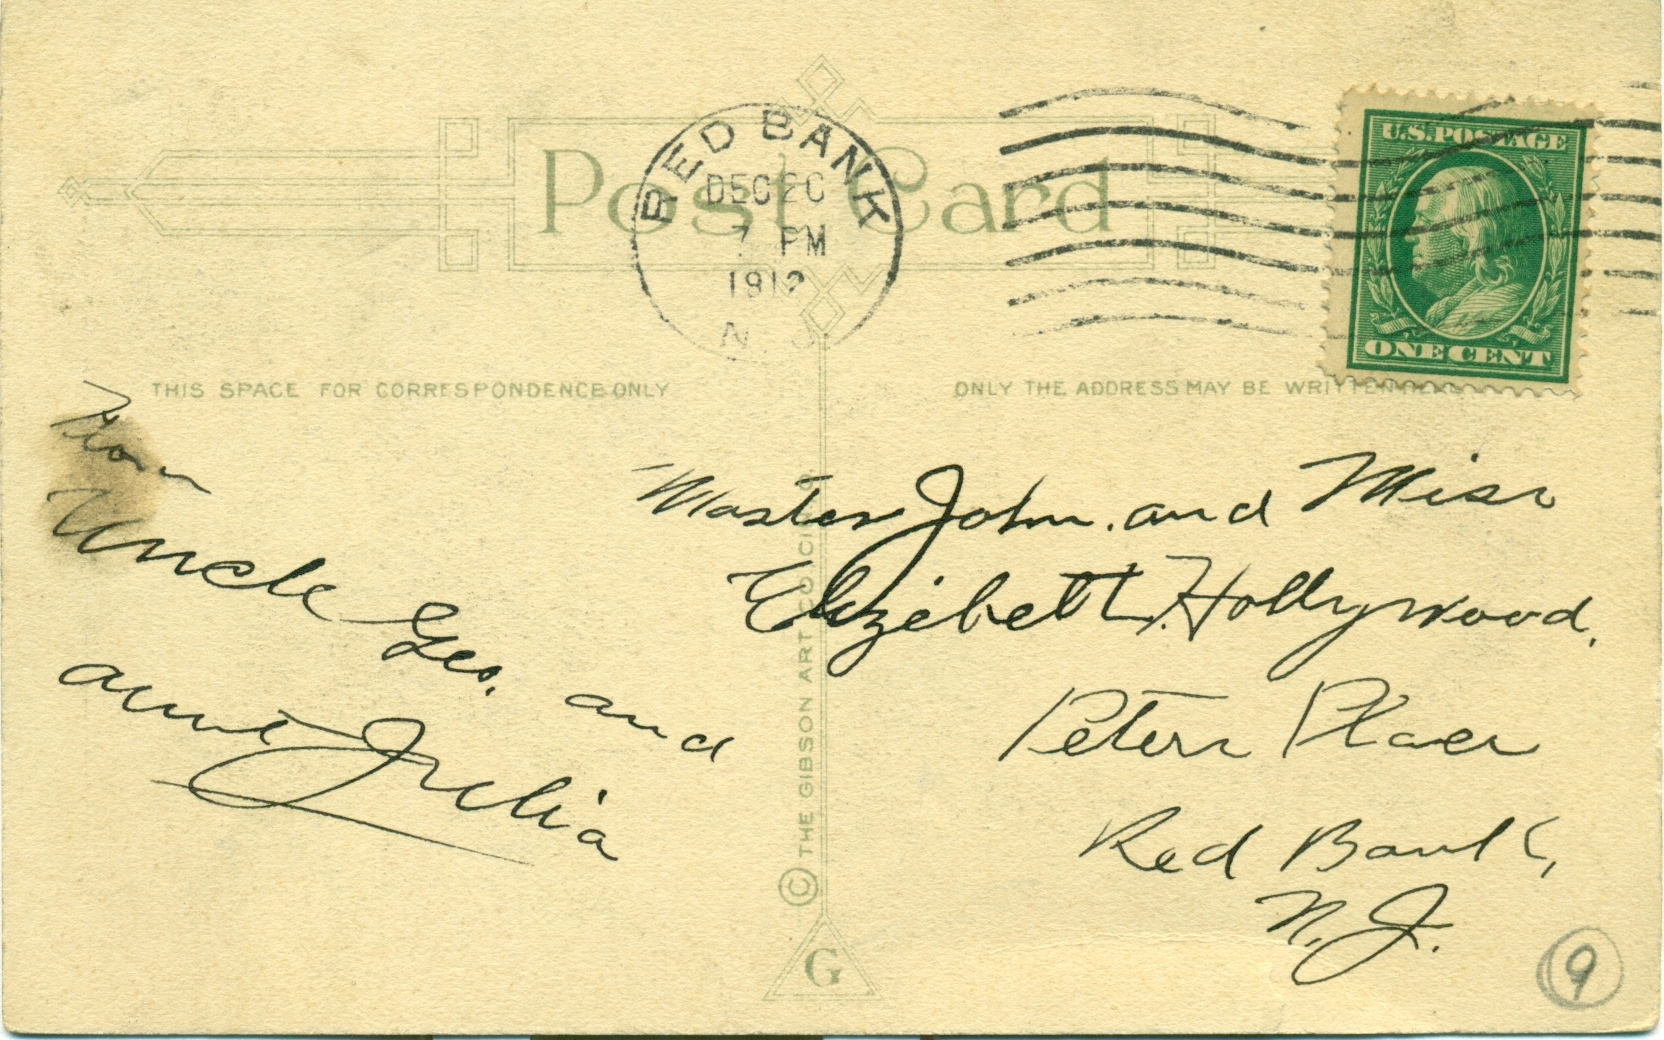 Post Card
RED BANK
DEC 20
7 PM
1912
N J
U.S. POSTAGE
ONE CENT
THIS SPACE FOR CORRESPONDENCE ONLY
ONLY THE ADDRESS MAY BE WRITTEN HERE
From
Uncle Geo. and
aunt Julia
Master John. and Miss
Elizebeth. Hollywood.
Peters Place
Red Bank,
N. J.
© THE GIBSON ART CO CIN. O.
G
9